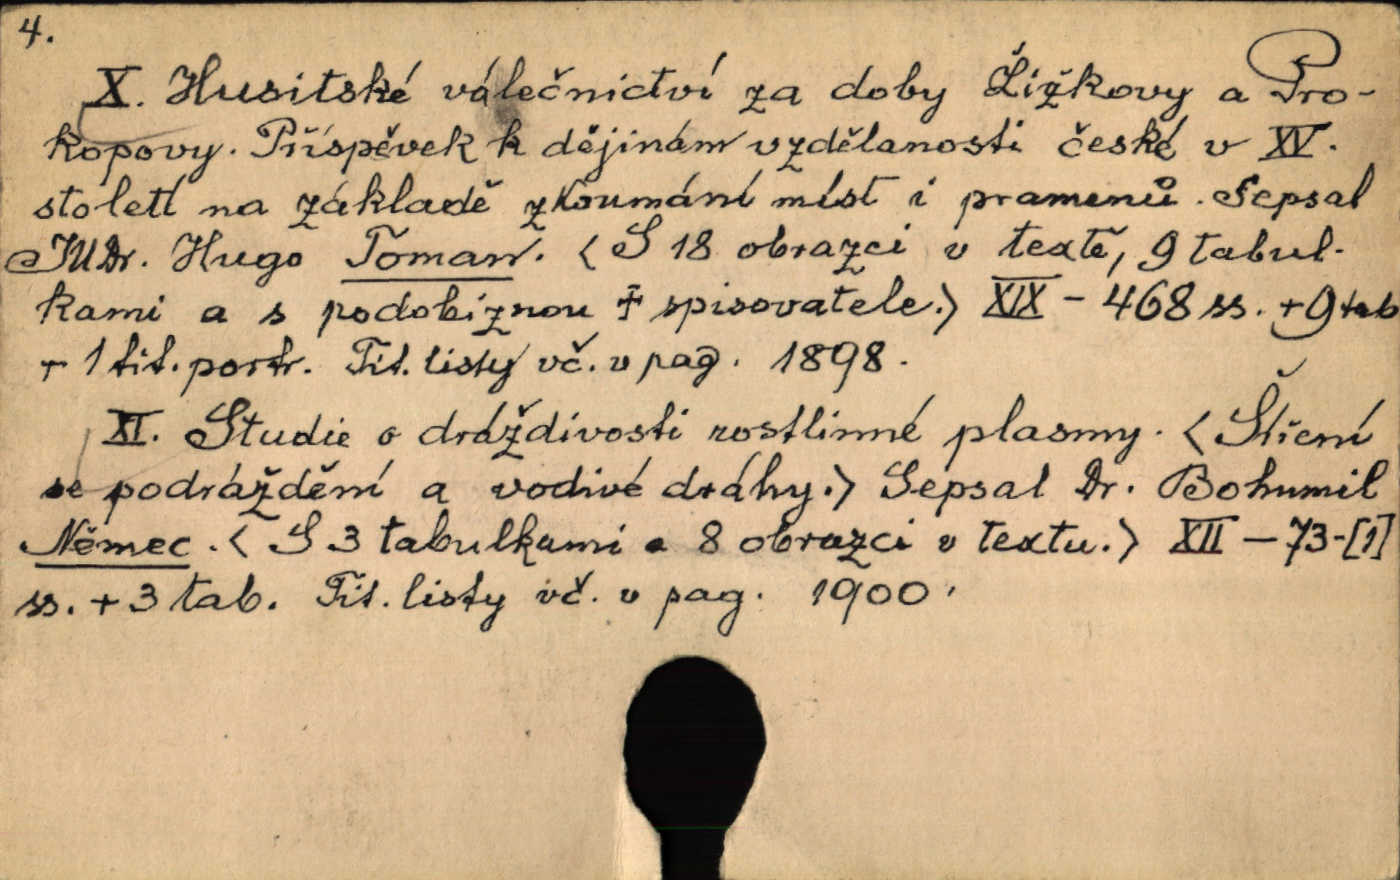 4.
X. Husitské válečnictví za doby Žižkovy a Pro-
kopovy. Příspěvek k dějinám vzdělanosti české v XV.
století na základě zkoumání míst i pramenů. Sepsal
JUDr. Hugo Toman. < S 18 obrazci v textě, 9 tabul-
kami a s podobiznou † spisovatele.> XIX - 468 ss. + 9 tab
+ 1 tit. portr. Tit. listy vč. v pag. 1898.
XI. Studie o dráždivosti rostlinné plasmy. < Šíření
se podráždění a vodivé dráhy.> Sepsal Dr. Bohumil
Němec. < S 3 tabulkami a 8 obrazci v textu.> XII - 73-[1]
ss. + 3 tab. Tit. listy vč. v pag. 1900.